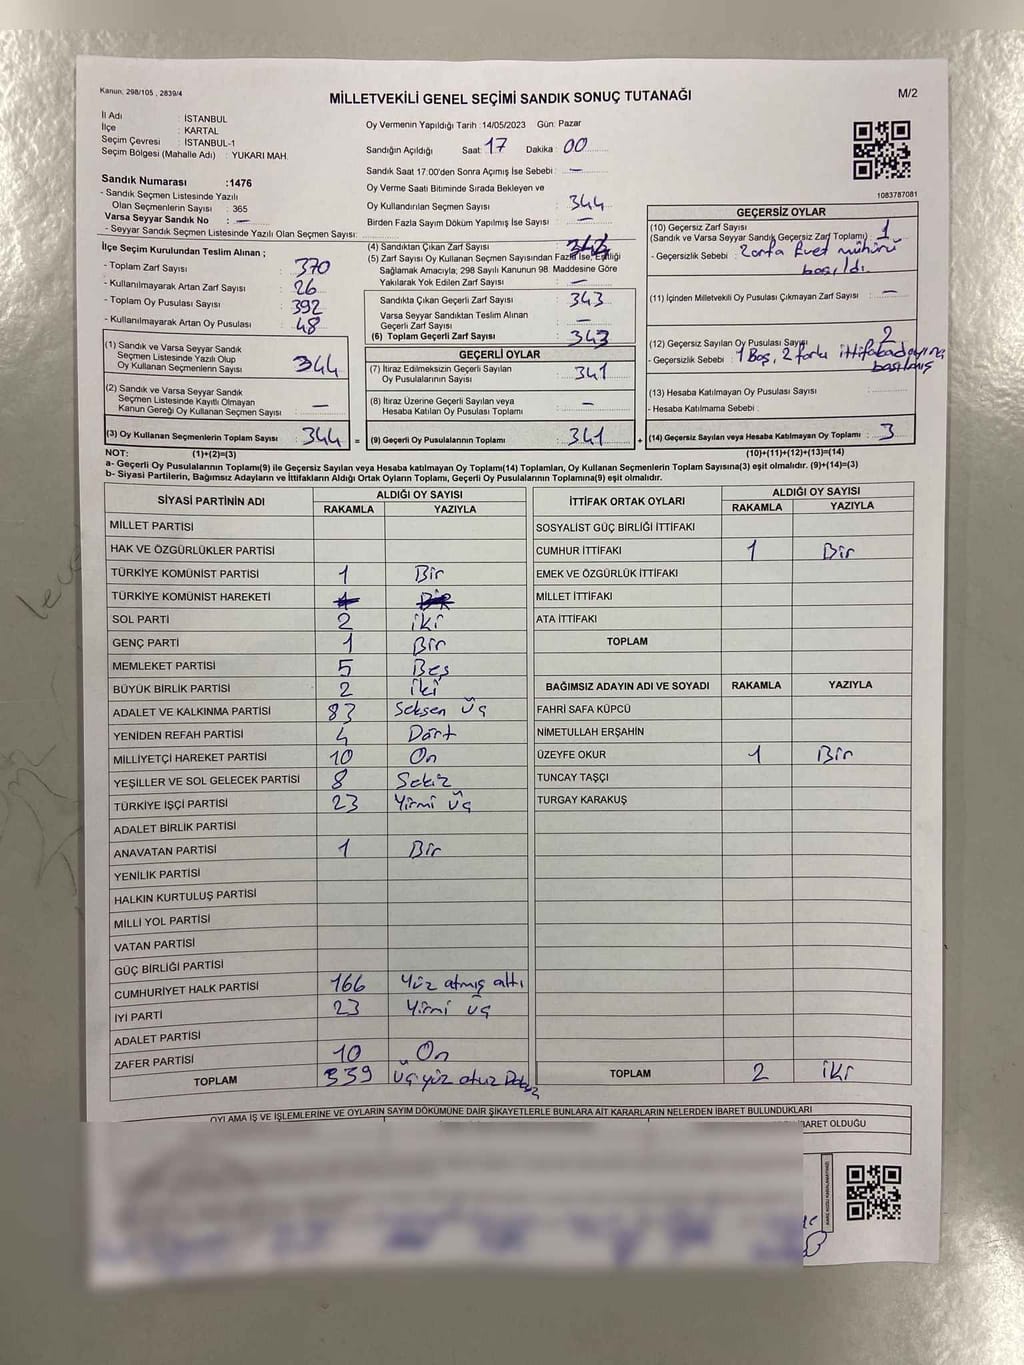 Kanun, 298/105 , 2839/4
MİLLETVEKİLİ GENEL SEÇİMİ SANDIK SONUÇ TUTANAĞI
M/2
İl Adı : İSTANBUL
İlçe : KARTAL
Seçim Çevresi : İSTANBUL-1
Seçim Bölgesi (Mahalle Adı) : YUKARI MAH.
Oy Vermenin Yapıldığı Tarih :14/05/2023 Gün: Pazar
Sandığın Açıldığı Saat: 17 Dakika : 00
Sandık Saat 17:00'den Sonra Açımış İse Sebebi : —
Oy Verme Saati Bitiminde Sırada Bekleyen ve
Oy Kullandırılan Seçmen Sayısı : 344
Birden Fazla Sayım Döküm Yapılmış İse Sayısı : —
1083787081
Sandık Numarası :1476
- Sandık Seçmen Listesinde Yazılı
Olan Seçmenlerin Sayısı : 365
Varsa Seyyar Sandık No : —
- Seyyar Sandık Seçmen Listesinde Yazılı Olan Seçmen Sayısı:
İlçe Seçim Kurulundan Teslim Alınan ;
- Toplam Zarf Sayısı : 370
- Kullanılmayarak Artan Zarf Sayısı : 26
- Toplam Oy Pusulası Sayısı : 392
- Kullanılmayarak Artan Oy Pusulası : 48
(1) Sandık ve Varsa Seyyar Sandık
Seçmen Listesinde Yazılı Olup
Oy Kullanan Seçmenlerin Sayısı : 344
(2) Sandık ve Varsa Seyyar Sandık
Seçmen Listesinde Kayıtlı Olmayan
Kanun Gereği Oy Kullanan Seçmen Sayısı : —
(3) Oy Kullanan Seçmenlerin Toplam Sayısı : 344 =
(4) Sandıktan Çıkan Zarf Sayısı :
(5) Zarf Sayısı Oy Kullanan Seçmen Sayısından Fazla İse, Eşitliği
Sağlamak Amacıyla; 298 Sayılı Kanunun 98. Maddesine Göre
Yakılarak Yok Edilen Zarf Sayısı : —
Sandıkta Çıkan Geçerli Zarf Sayısı : 343
Varsa Seyyar Sandıktan Teslim Alınan
Geçerli Zarf Sayısı : —
(6) Toplam Geçerli Zarf Sayısı : 343
GEÇERLİ OYLAR
(7) İtiraz Edilmeksizin Geçerli Sayılan
Oy Pusulalarının Sayısı : 341
(8) İtiraz Üzerine Geçerli Sayılan veya
Hesaba Katılan Oy Pusulası Toplamı : —
(9) Geçerli Oy Pusulalarının Toplamı : 341 +
GEÇERSİZ OYLAR
(10) Geçersiz Zarf Sayısı
(Sandık ve Varsa Seyyar Sandık Geçersiz Zarf Toplamı) : 1
- Geçersizlik Sebebi : Zarfa Evet mührü
basıldı.
(11) İçinden Milletvekili Oy Pusulası Çıkmayan Zarf Sayısı : —
(12) Geçersiz Sayılan Oy Pusulası Sayısı : 2
- Geçersizlik Sebebi : 1 Boş, 2 farklı ittifaka
basılmış
(13) Hesaba Katılmayan Oy Pusulası Sayısı :
- Hesaba Katılmama Sebebi :
(14) Geçersiz Sayılan veya Hesaba Katılmayan Oy Toplamı : 3
NOT: (1)+(2)=(3) (10)+(11)+(12)+(13)=(14)
a- Geçerli Oy Pusulalarının Toplamı(9) ile Geçersiz Sayılan veya Hesaba katılmayan Oy Toplamı(14) Toplamları, Oy Kullanan Seçmenlerin Toplam Sayısına(3) eşit olmalıdır. (9)+(14)=(3)
b- Siyasi Partilerin, Bağımsız Adayların ve İttifakların Aldığı Ortak Oyların Toplamı, Geçerli Oy Pusulalarının Toplamına(9) eşit olmalıdır.
SİYASİ PARTİNİN ADI ALDIĞI OY SAYISI
RAKAMLA YAZIYLA
MİLLET PARTİSİ
HAK VE ÖZGÜRLÜKLER PARTİSİ
TÜRKİYE KOMÜNİST PARTİSİ 1 Bir
TÜRKİYE KOMÜNİST HAREKETİ 1 Bir
SOL PARTİ 2 iki
GENÇ PARTİ 1 Bir
MEMLEKET PARTİSİ 5 Beş
BÜYÜK BİRLİK PARTİSİ 2 iki
ADALET VE KALKINMA PARTİSİ 83 Seksen Üç
YENİDEN REFAH PARTİSİ 4 Dört
MİLLİYETÇİ HAREKET PARTİSİ 10 On
YEŞİLLER VE SOL GELECEK PARTİSİ 8 Sekiz
TÜRKİYE İŞÇİ PARTİSİ 23 Yirmi Üç
ADALET BİRLİK PARTİSİ
ANAVATAN PARTİSİ 1 Bir
YENİLİK PARTİSİ
HALKIN KURTULUŞ PARTİSİ
MİLLİ YOL PARTİSİ
VATAN PARTİSİ
GÜÇ BİRLİĞİ PARTİSİ
CUMHURİYET HALK PARTİSİ 166 Yüz atmış altı
İYİ PARTİ 23 Yirmi üç
ADALET PARTİSİ
ZAFER PARTİSİ 10 On
TOPLAM 339 Üçyüz otuz Dokuz
İTTİFAK ORTAK OYLARI ALDIĞI OY SAYISI
RAKAMLA YAZIYLA
SOSYALİST GÜÇ BİRLİĞİ İTTİFAKI
CUMHUR İTTİFAKI 1 Bir
EMEK VE ÖZGÜRLÜK İTTİFAKI
MİLLET İTTİFAKI
ATA İTTİFAKI
TOPLAM
BAĞIMSIZ ADAYIN ADI VE SOYADI RAKAMLA YAZIYLA
FAHRİ SAFA KÜPCÜ
NİMETULLAH ERŞAHİN
ÜZEYFE OKUR 1 Bir
TUNCAY TAŞÇI
TURGAY KARAKUŞ
TOPLAM 2 iki
OYLAMA İŞ VE İŞLEMLERİNE VE OYLARIN SAYIM DÖKÜMÜNE DAİR ŞİKAYETLERLE BUNLARA AİT KARARLARIN NELERDEN İBARET BULUNDUKLARI
İBARET OLDUĞU